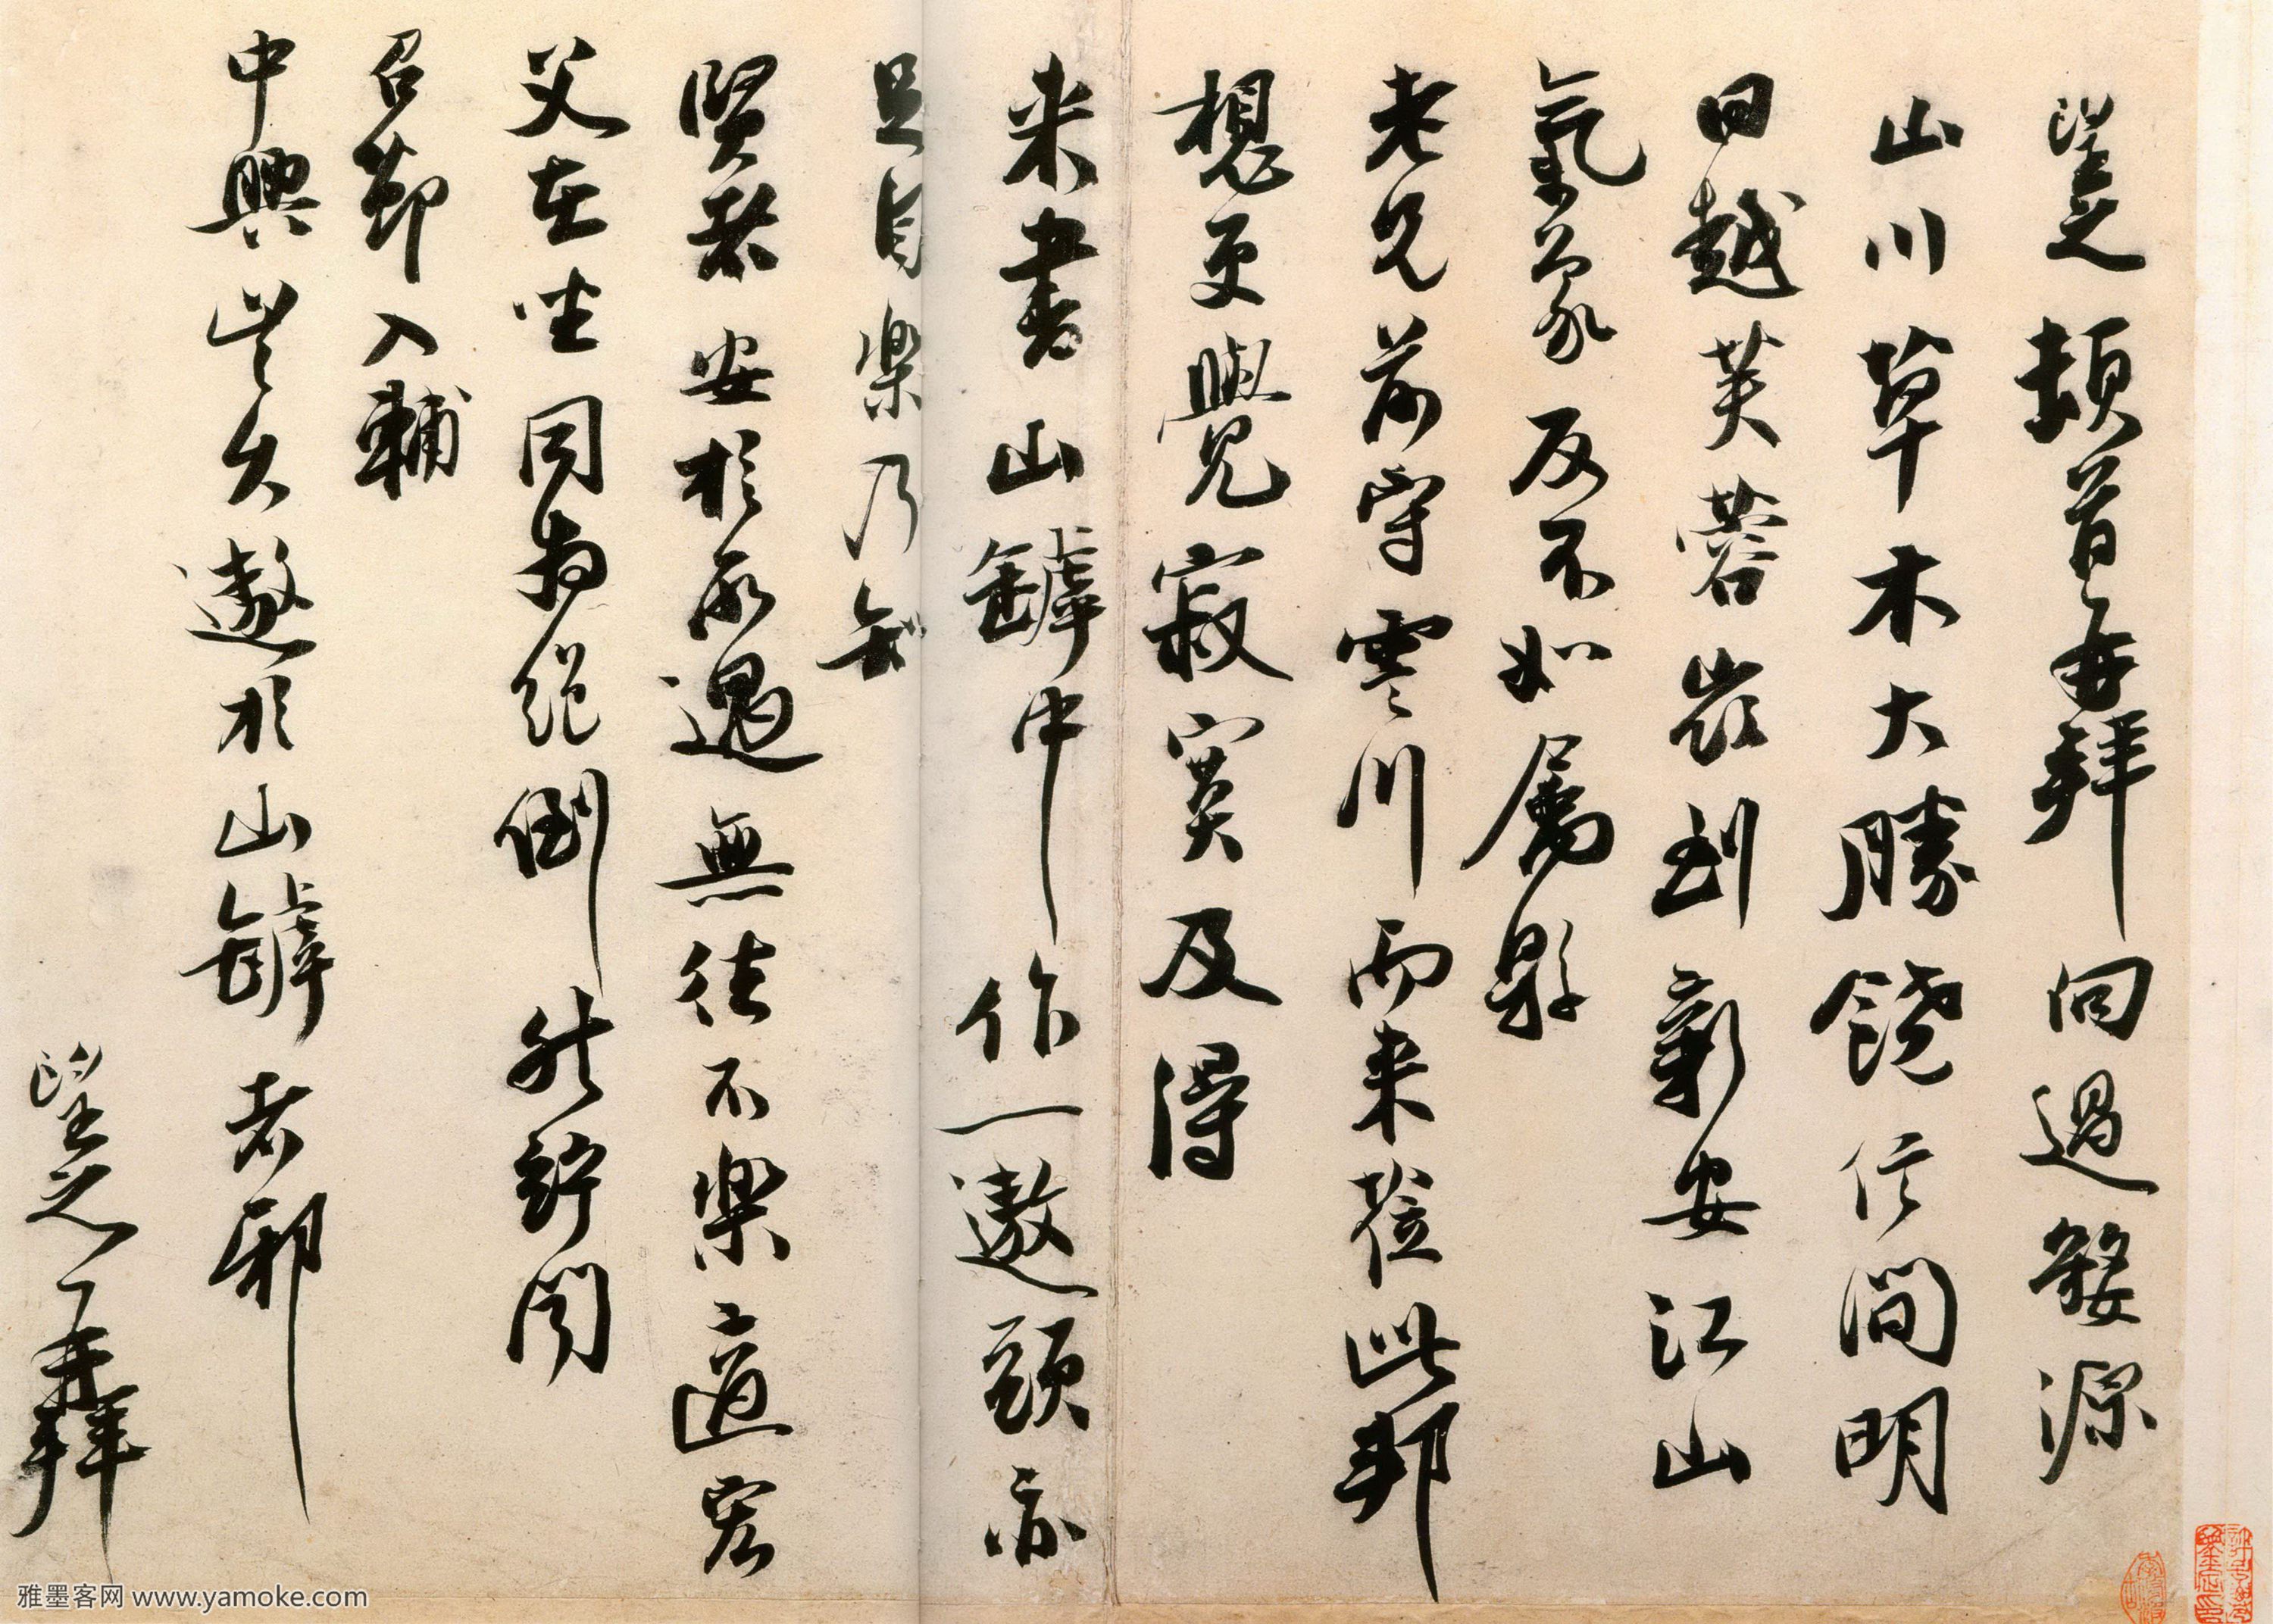 望之頓首再拜向過婺源
山川草木大勝饒信間明
日越芙蓉嶺到新安江山
氣象反不如屬縣
老兄前守霅川而來蒞此邦
想更覺寂寞及得
来書山罅中作一遨頭亦
足自樂乃知
賢者安於所遇無往不樂適宏
父在坐同為絕倒然竊聞
召節入輔
中興豈久遨於山罅者邪
望之再拜
雅墨客网 www.yamoke.com